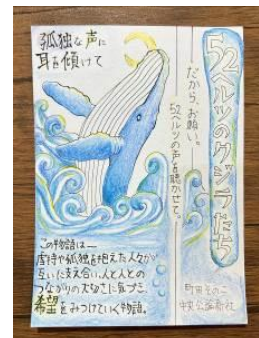 孤独な声に
耳を傾けて
52ヘルツのクジラたち
だから、お願い。
52ヘルツの声を聴かせて。
この物語は―
虐待や孤独を抱えた人々が
互いに支え合い、人と人との
つながりの大切さに気づき
希望をみつけていく物語。
町田そのこ
中央公論新社